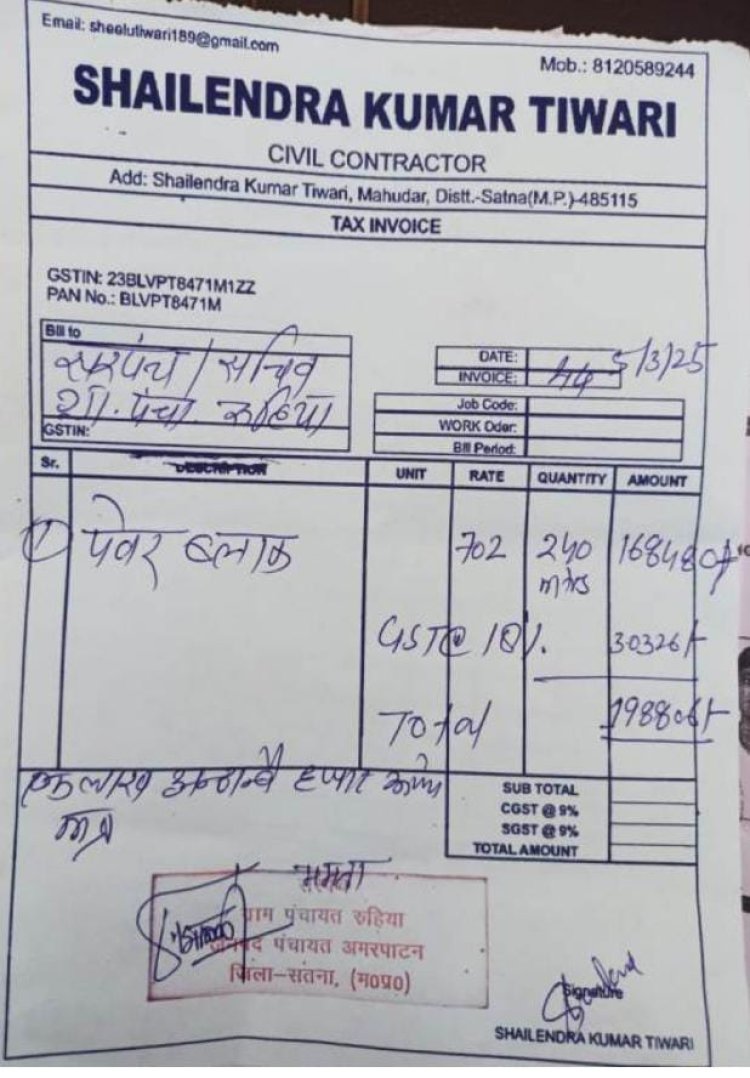 Email: sheelutiwari189@gmail.com
Mob.: 8120589244
SHAILENDRA KUMAR TIWARI
CIVIL CONTRACTOR
Add: Shailendra Kumar Tiwari, Mahudar, Distt.-Satna(M.P.)-485115
TAX INVOICE
GSTIN: 23BLVPT8471M1ZZ
PAN No.: BLVPT8471M
Bill to
सरपंच / सचिव
ग्रा. पंचा. रूहिया
GSTIN:
DATE: 5/3/25
INVOICE: 44
Job Code:
WORK Oder:
Bill Period:
Sr. DESCRIPTION UNIT RATE QUANTITY AMOUNT
1 पेवर ब्लाक 702 240 mtrs 168480/-
GST@ 18%. 30326/-
Total 198806/-
एक लाख अन्ठान्वे हजार
मात्र
SUB TOTAL
CGST @ 9%
SGST @ 9%
TOTAL AMOUNT
ममता
ग्राम पंचायत रुहिया
जनपद पंचायत अमरपाटन
जिला-सतना, (म०प्र०)
Signature
SHAILENDRA KUMAR TIWARI